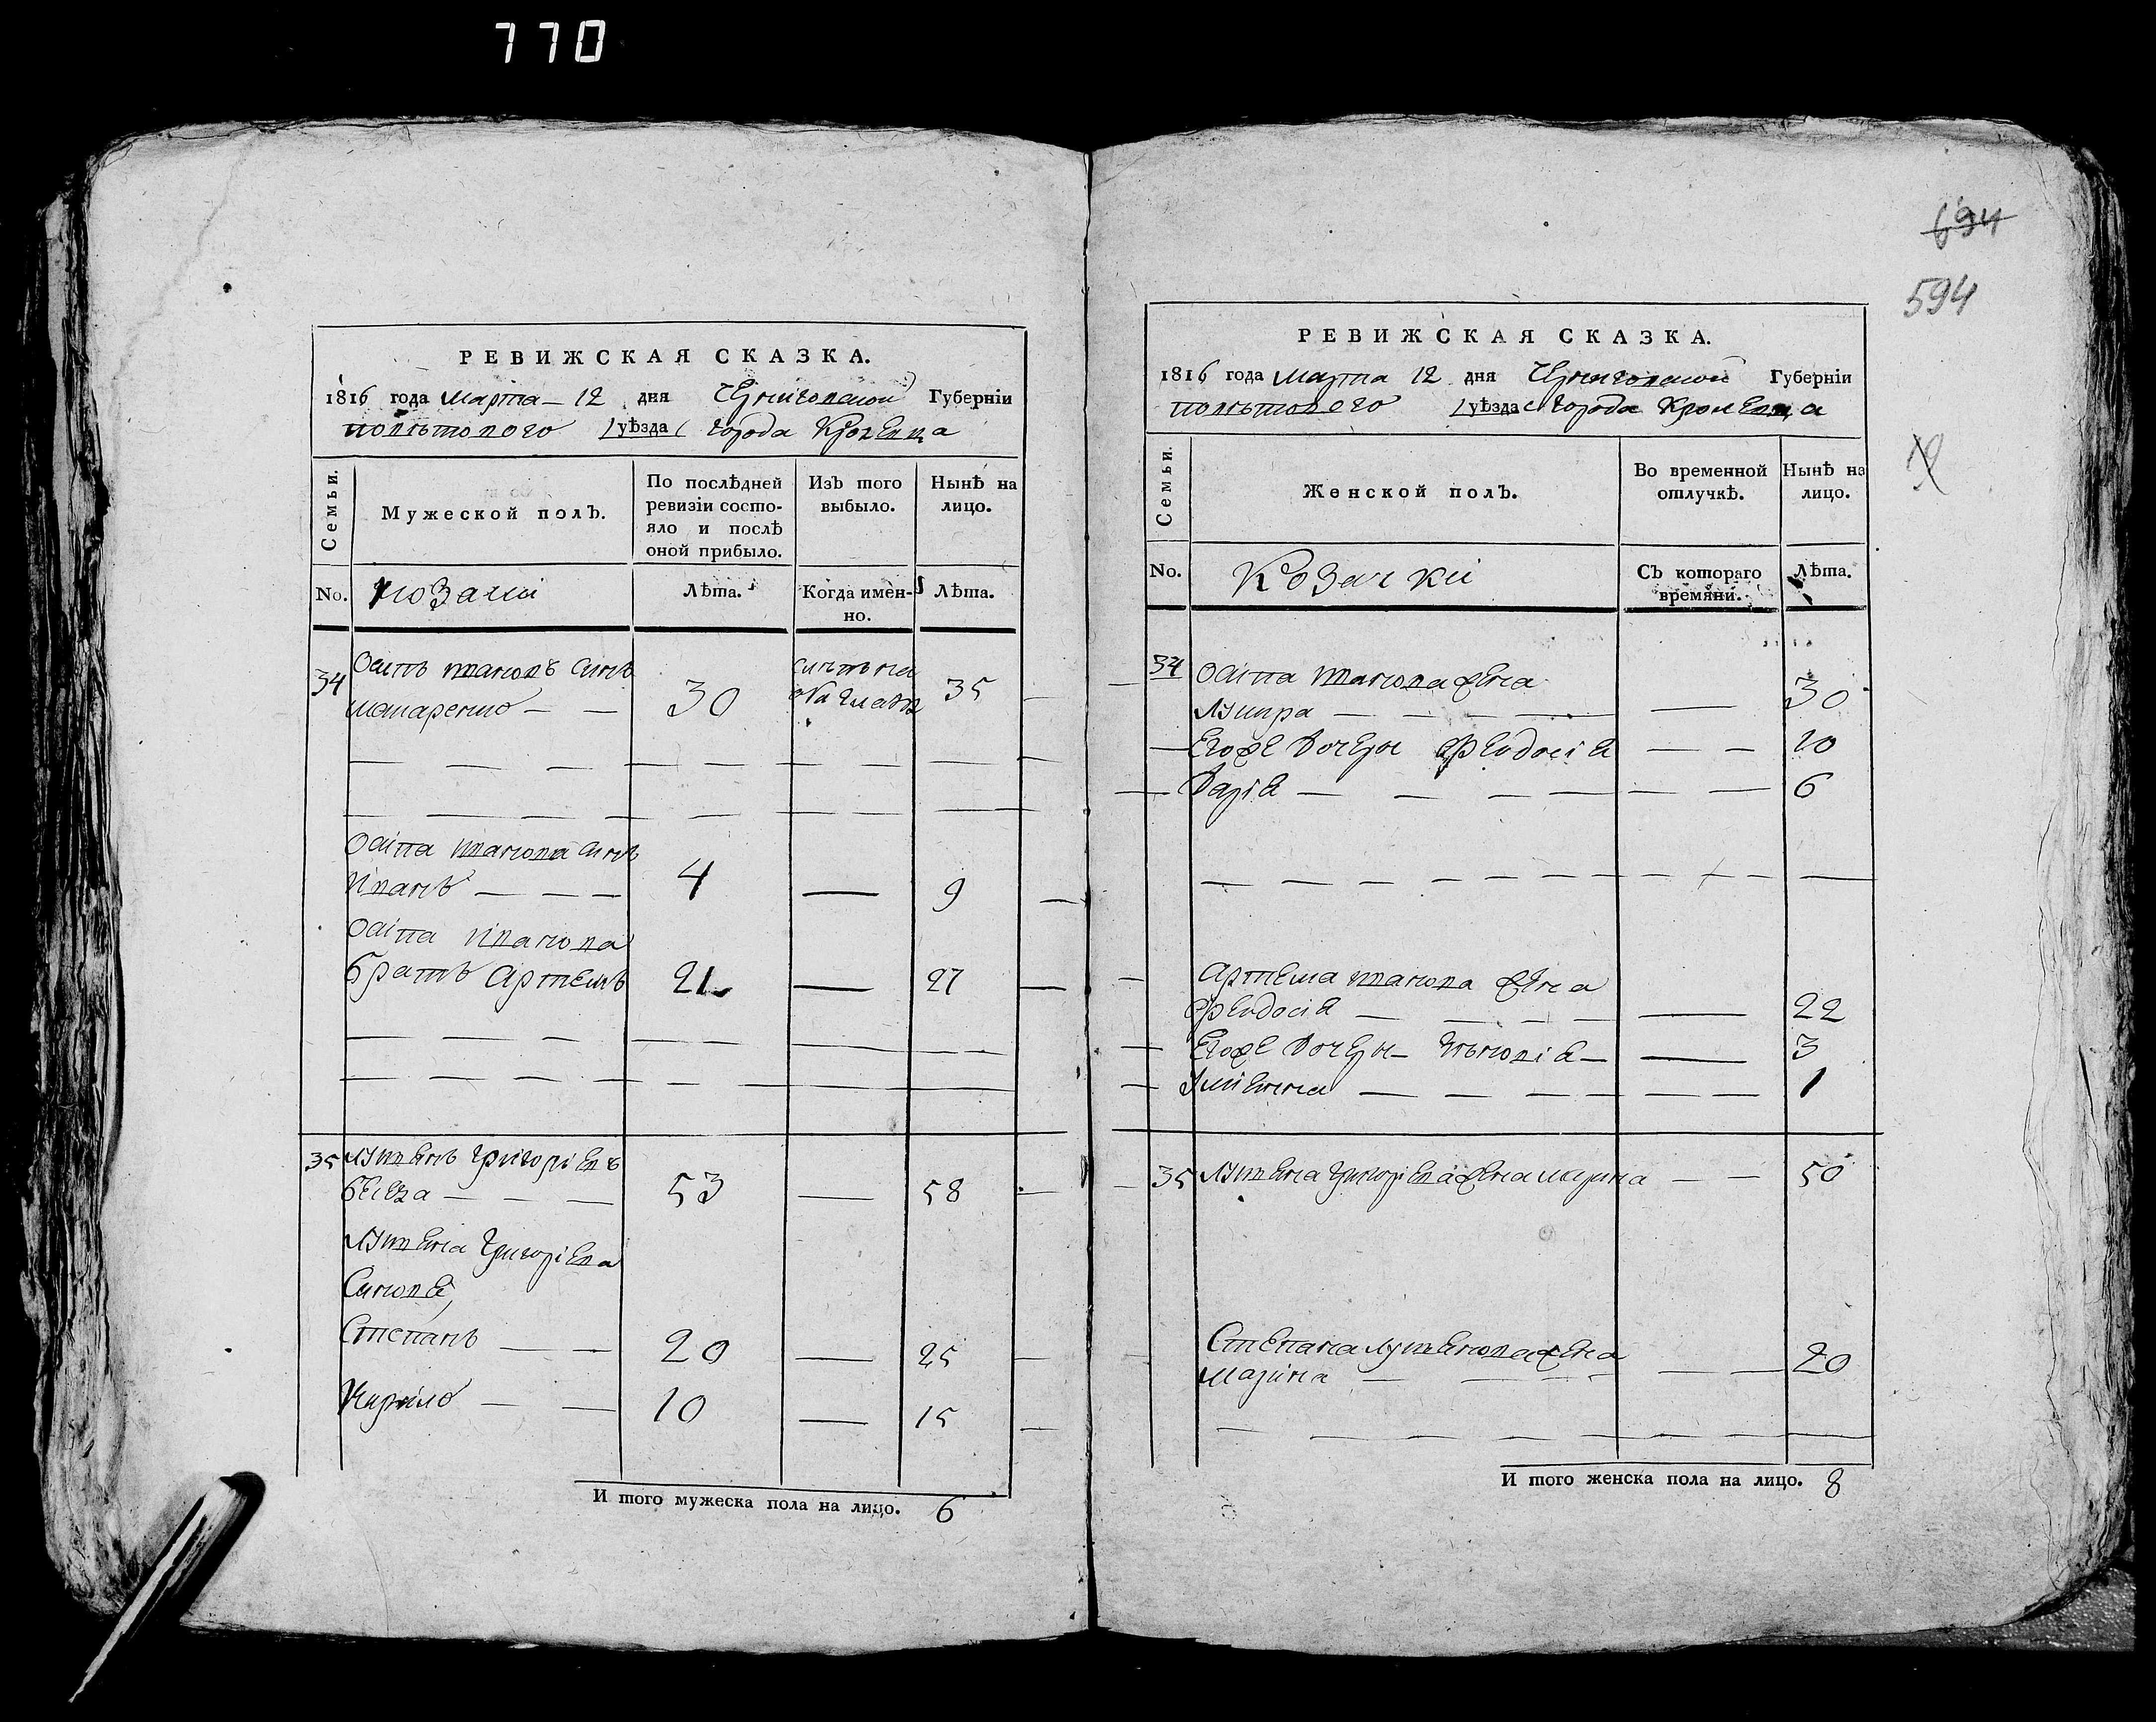 770
694
594
РЕВИЖСКАЯ СКАЗКА.
1816 года Марта - 12 дня Чернiговской Губернiи
повѣтового уѣзда города Кролевца
Семьи.
Мужеской полъ.
По послѣдней ревизiи состо-
яло и послѣ
оной прибыло.
Изъ того
выбыло.
Нынѣ на
лицо.
No. Козаки
Лѣта.
Когда имен-
но.
Лѣта.
34 Осипъ Ивановъ синъ
30 35
Ивана
Осипа Иванова синъ
Иванъ 4 9
Осипа Иванова
братъ Артемъ 21 27
35 Лукянъ Григорiевъ
53 58
Лукяна Григорiева
Синовя,
Степанъ 20 25
Кирило 10 15
И того мужеска пола на лицо. 6
РЕВИЖСКАЯ СКАЗКА.
1816 года Марта 12 дня Чернiговской Губернiи
повѣтового уѣзда города Кролевца
Семьи.
Женской полъ.
Во временной
отлучкѣ.
Нынѣ на
лицо.
No. Козачки
Съ котораго
времяни.
Лѣта.
34 Осипа Иванова жена
30
Егоже дочери Феодосiя 10
Дарiя 6
Артема Иванова жена
Феодосiя 22
Егоже дочери 3
Улiянна 1
35 Лукяна Григорiева жена Марина 50
Степана Лукянова жена
Марина 20
И того женска пола на лицо. 8